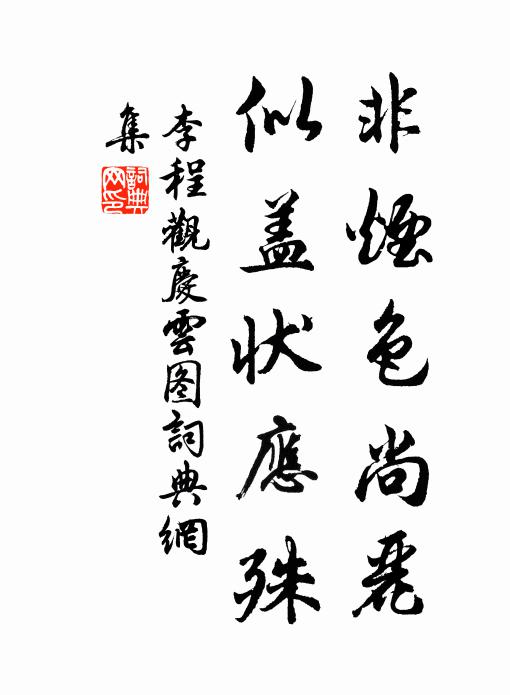 非煙色尚麗
似盖状應殊
李程觀慶雲图詞典網
集
詞典
网印